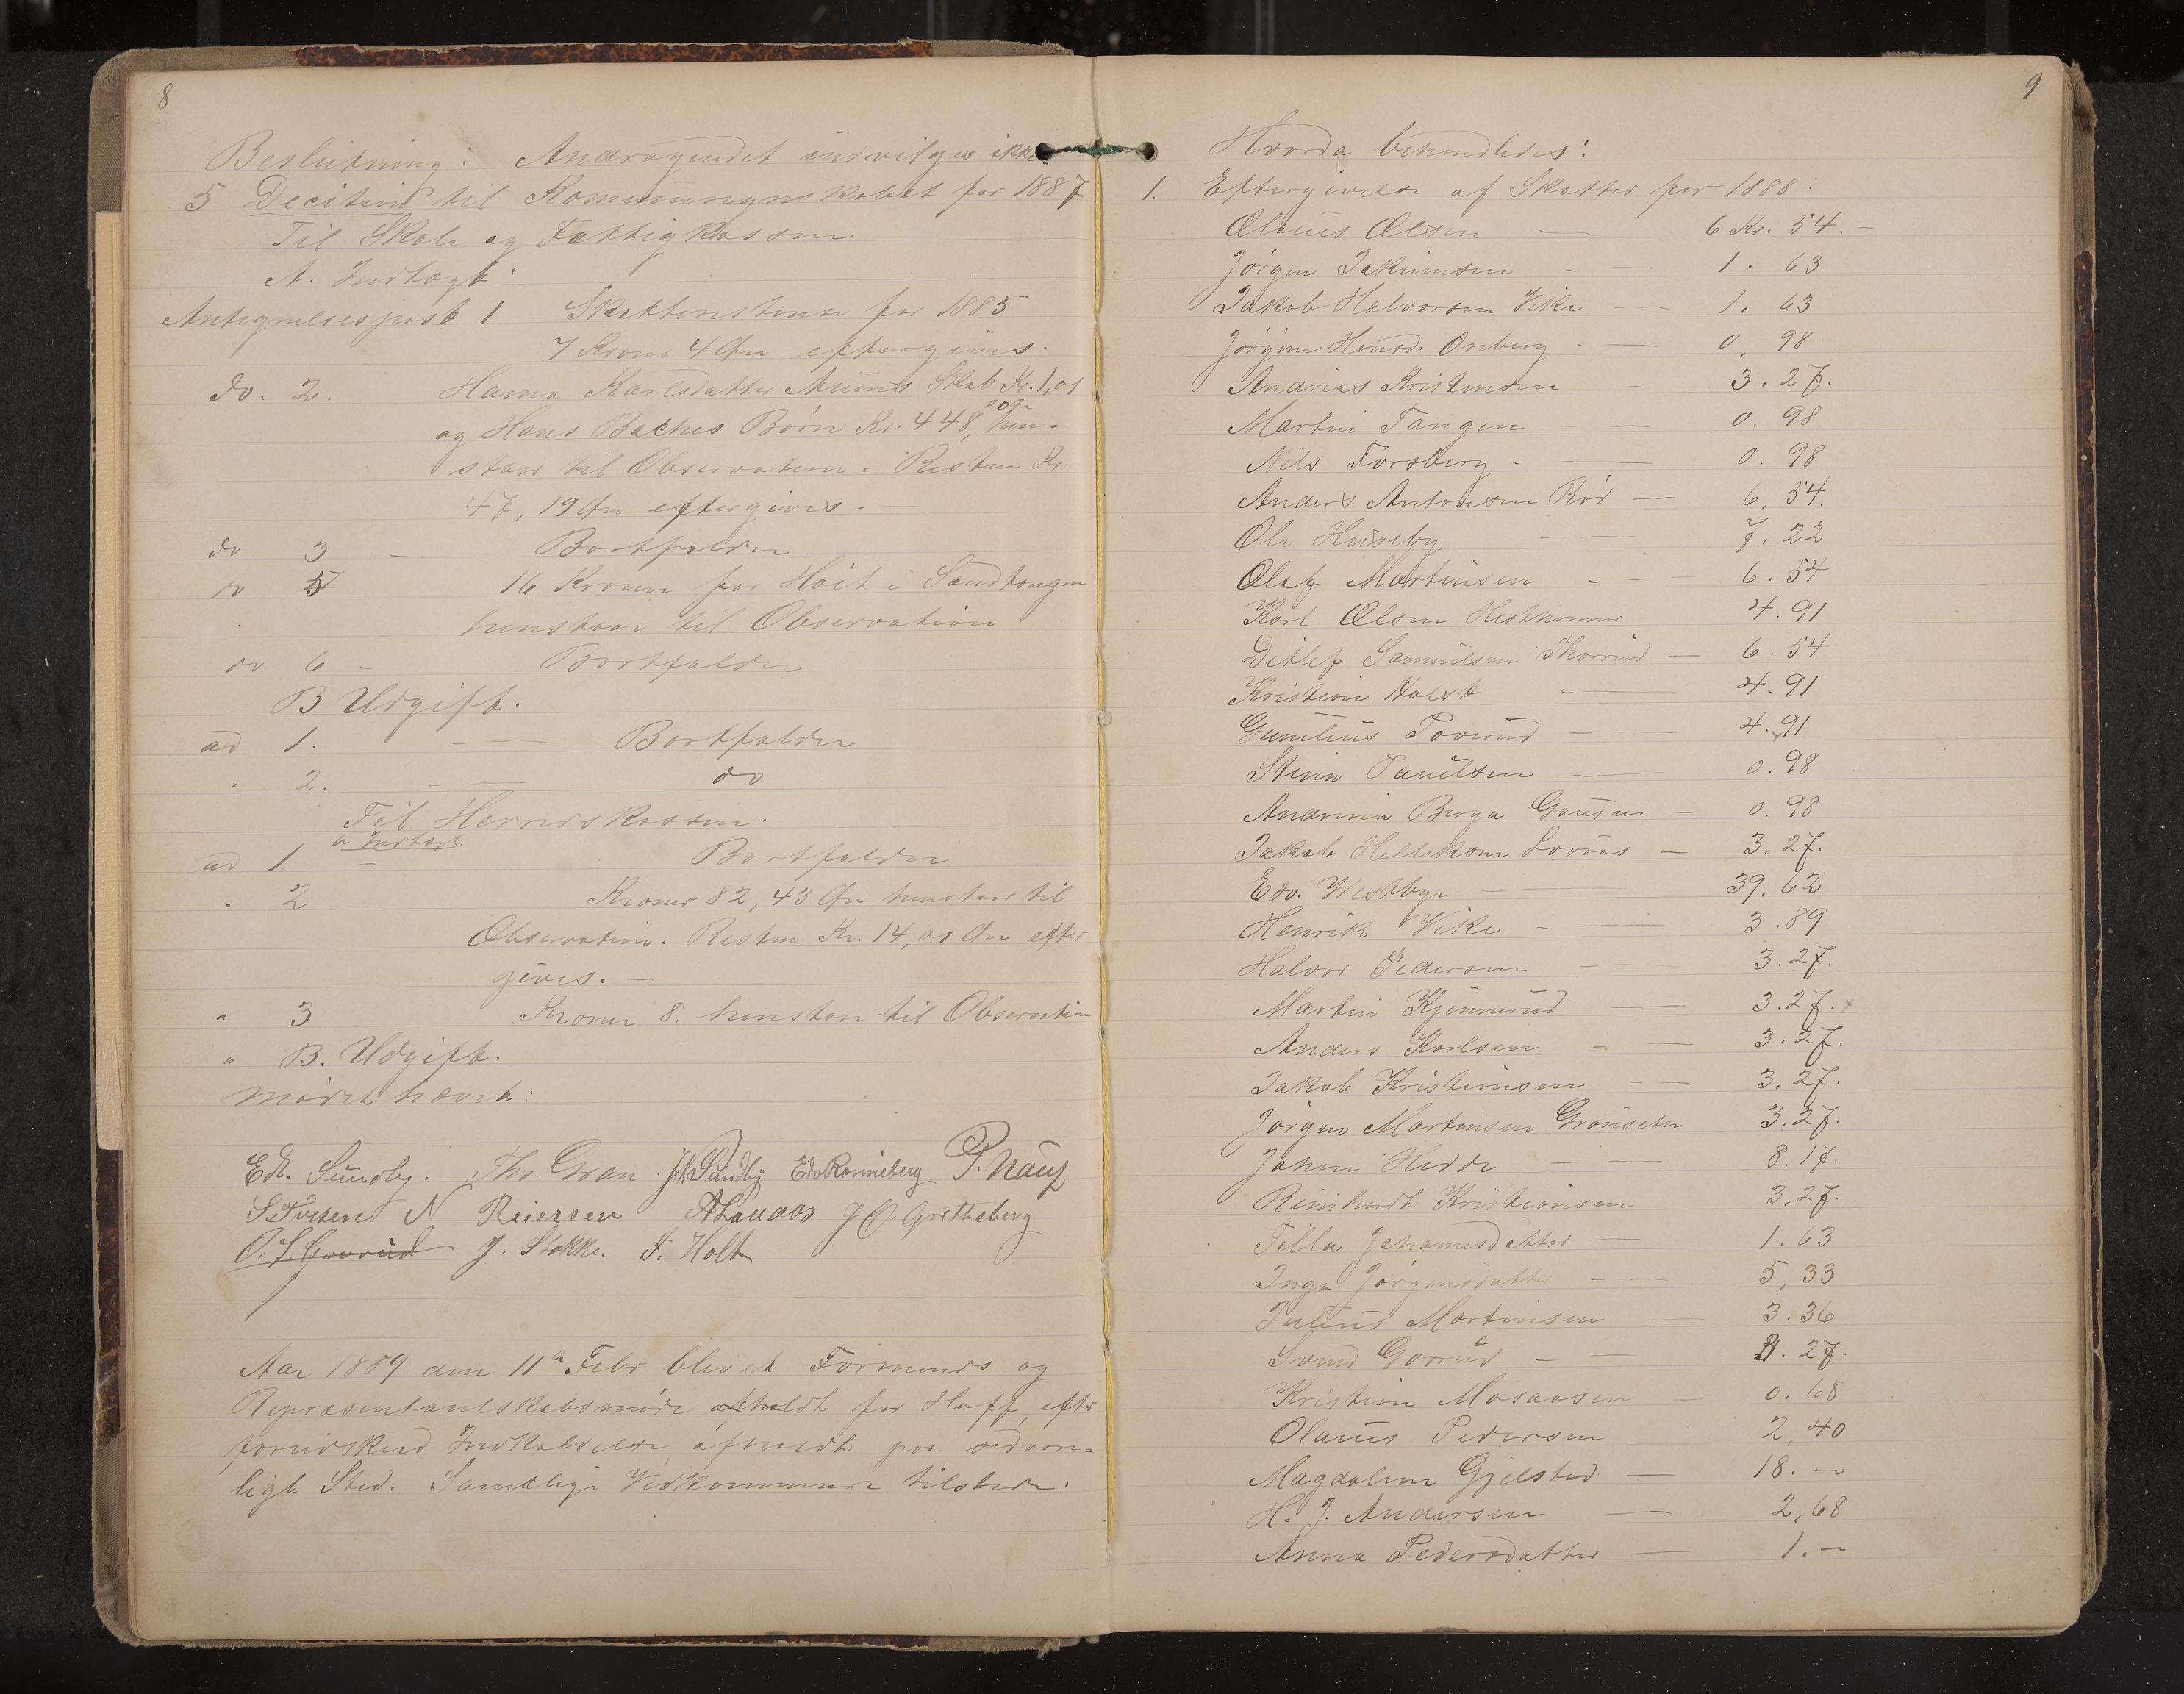 8
Beslutning: Andragendet indvilges ikke.
5 Decition til Kommuneregnskabet for 1887
Til Skole og Fattigkassen
A. Indtægt
Antegnelsespost 1 Skatterestanse for 1885
7 Kroner 4 Øre eftergives.
do. 2. Karlsdatter Skat Kr. 1,01
og Hans Baches Børn Kr. 448, 20 Øre hen-
staar til Observation. Resten Kr.
47, 19 Øre eftergives. —
do 3 — Bortfalder
do 5 16 Kroner for Hoit i Sandtangen
henstaar til Observation
do 6 — Bortfalder
B Udgift.
ad 1. — — Bortfalder
" 2. — — do
Til Herredskassen.
a Indtægt
ad 1 — Bortfalder
" 2 Kroner 82, 43 Øre henstaar til
Observation. Resten Kr. 14,01 Øre efter
gives. —
" 3 Kroner 8. henstaar til Observation
" B. Udgift.
Mødet hævet:
Edv. Sundby. Th. Gran. J. N. Sundby Edv Ronneberg P. Nauf
S. Iversen N Reiersen A Lauaas J O. Gretteberg
O. S. Goverud J. Stokke. F. Holt
Aar 1889 den 11te Febr blev et Formands og
Repræsentantskabsmøde afholdt for Hoff, efter
forudskeed Indkaldelse, afholdt paa sædvan-
ligt Sted. Samtlige Vedkommende tilstede.
9
Hvorda behandledes:
1. Eftergivelse af Skatter for 1888:
Olaus Olsen — 6 Kr. 54. —
Jørgen Jakumsen - — 1. 63
Jakob Halvorsen Vike — — 1. 63
Jørgen Oreberg - — 0, 98
Andrias Kristensen — 3. 27.
Martin Tangen - — 0. 98
Nils Forsberg. — 0. 98
Anders Antonsen Rød — 6, 54.
Ole Huseby — — 7. 22
Olaf Martinsen - - 6. 54
Karl Olsen Hesthammer - 4. 91
Ditlef Samuelsen Thorrud — 6. 54
Kristian Holst - — 4. 91
Gunelius Poverud — — 4. 91
Stina Paulsen — 0. 98
Andrine Berga Gousen — 0. 98
Jakob Helleksen Lovaas — 3. 27.
Edv. Westbye — — 39. 62
Henrik Vike - — 3. 89
Halvor Pedersen — 3. 27.
Martin Kjennerud — 3. 27. x
Anders Karlsen - — 3. 27.
Jakob Kristiansen — — 3. 27.
Jørgen Martinsen Grønseten 3. 27.
Johan Hedde — — 8. 17.
Reinhardt Kristiansen 3. 27.
Tilla Johannesdatter — 1. 63
Inga Jørgensdatter - — 5, 33
Julius Martinsen — 3. 36
Svend Goverud - — 3. 27
Kristian Mosaasen — 0. 68
Olaus Pedersen 2, 40
Magdalene Gjelsted — 18. —
H. J. Andersen — — 2, 68
Anna Pedersdatter — 1. —